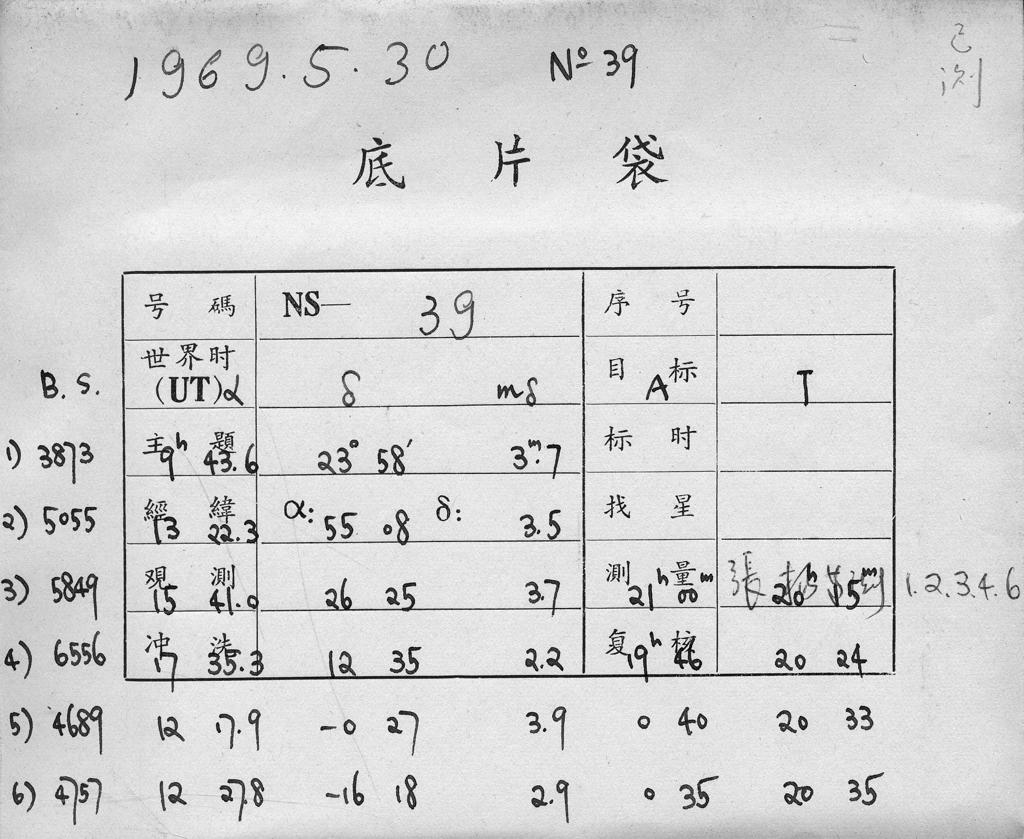 1969.5.30 Nº 39 已测
底片袋
号碼 NS— 39 序号
世界时 目标
B. S. (UT) α δ mδ A T
主題 标时
1) 3873 9ʰ 43.6 23° 58′ 3ᵐ.7
經緯 α: δ: 找星
2) 5055 13 22.3 55 08 3.5
观測 測量 張
3) 5849 15 41.0 26 25 3.7 21ʰ 00ᵐ 20ʰ 15ᵐ 1.2.3.4.6
冲洗 复核
4) 6556 17 35.3 12 35 2.2 19ʰ 46 20 24
5) 4689 12 17.9 -0 27 3.9 0 40 20 33
6) 4757 12 27.8 -16 18 2.9 0 35 20 35